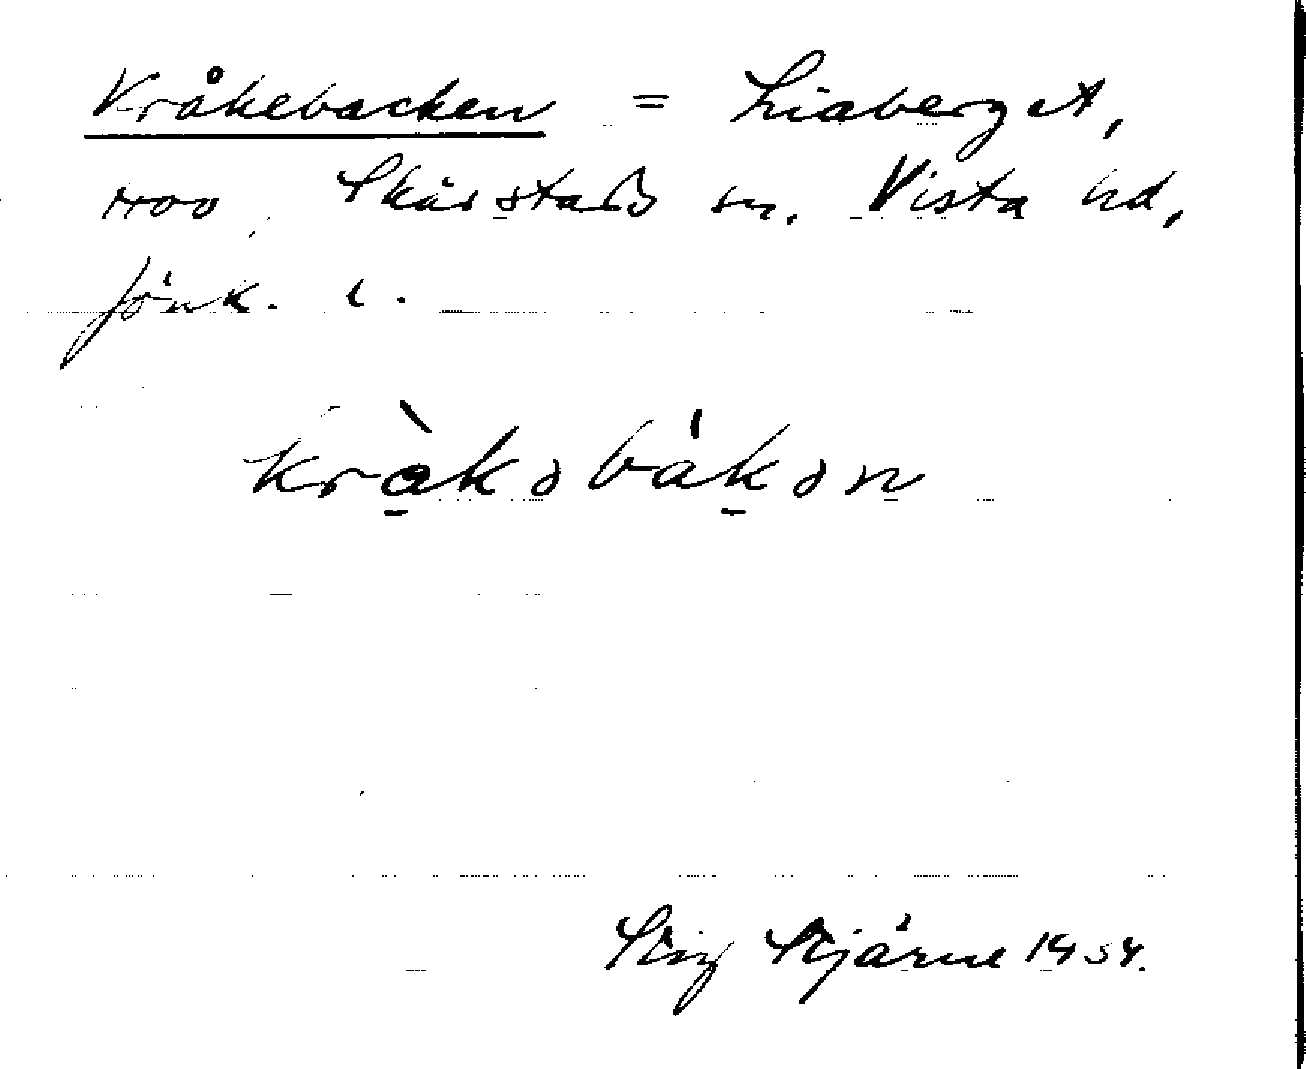 Kråkebacken = Liaberget,
Skärstads sn. Vista hd,
Jönk. l.
kràkəbákən
Stig Stjärne 1954.